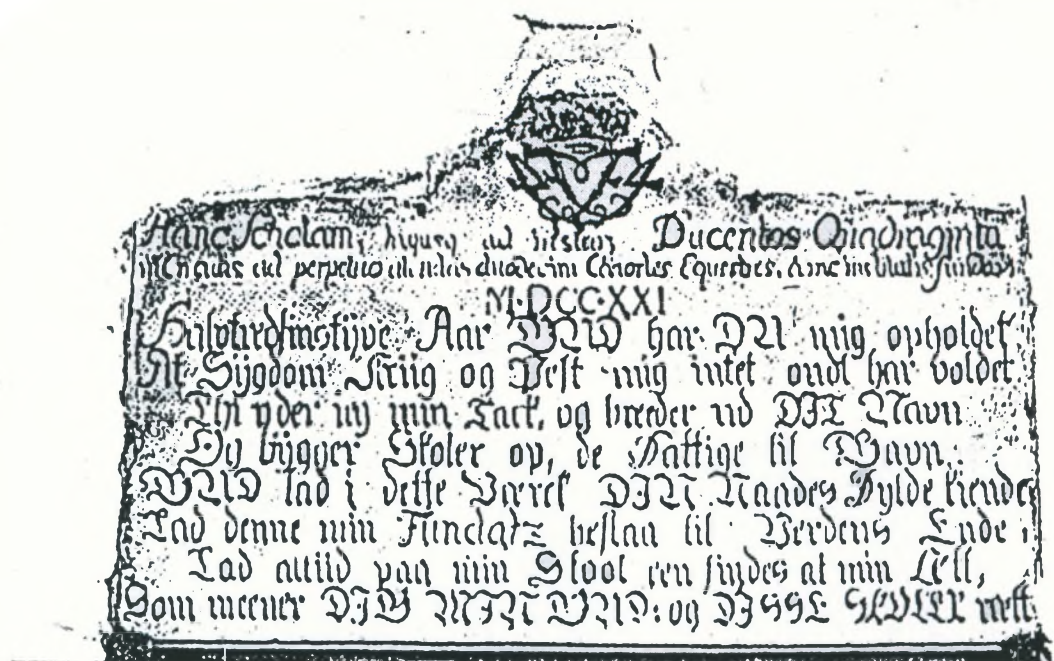 Hanc Scholam Ducentos Quadraginta
perpetuo Equestres,
M·DCC·XXI
Halvtredsinstyve Aar GUD har DU mig opholdet,
At Sÿgdom Kriig og Pest mig intet ondt har voldet
Thi yder min Tack, og breeder ud DIT Navn
Og bÿgger Skoler op, de Fattige til Gavn.
GUD lad i dette Værck DIN Naades Fylde kiende
Lad denne min Fundatz bestaa til Verdens Ende,
Lad altid paa min Skool een findes af min Æt,
Som meener DIG MIN GUD: og DISSE SKOLER rætt.